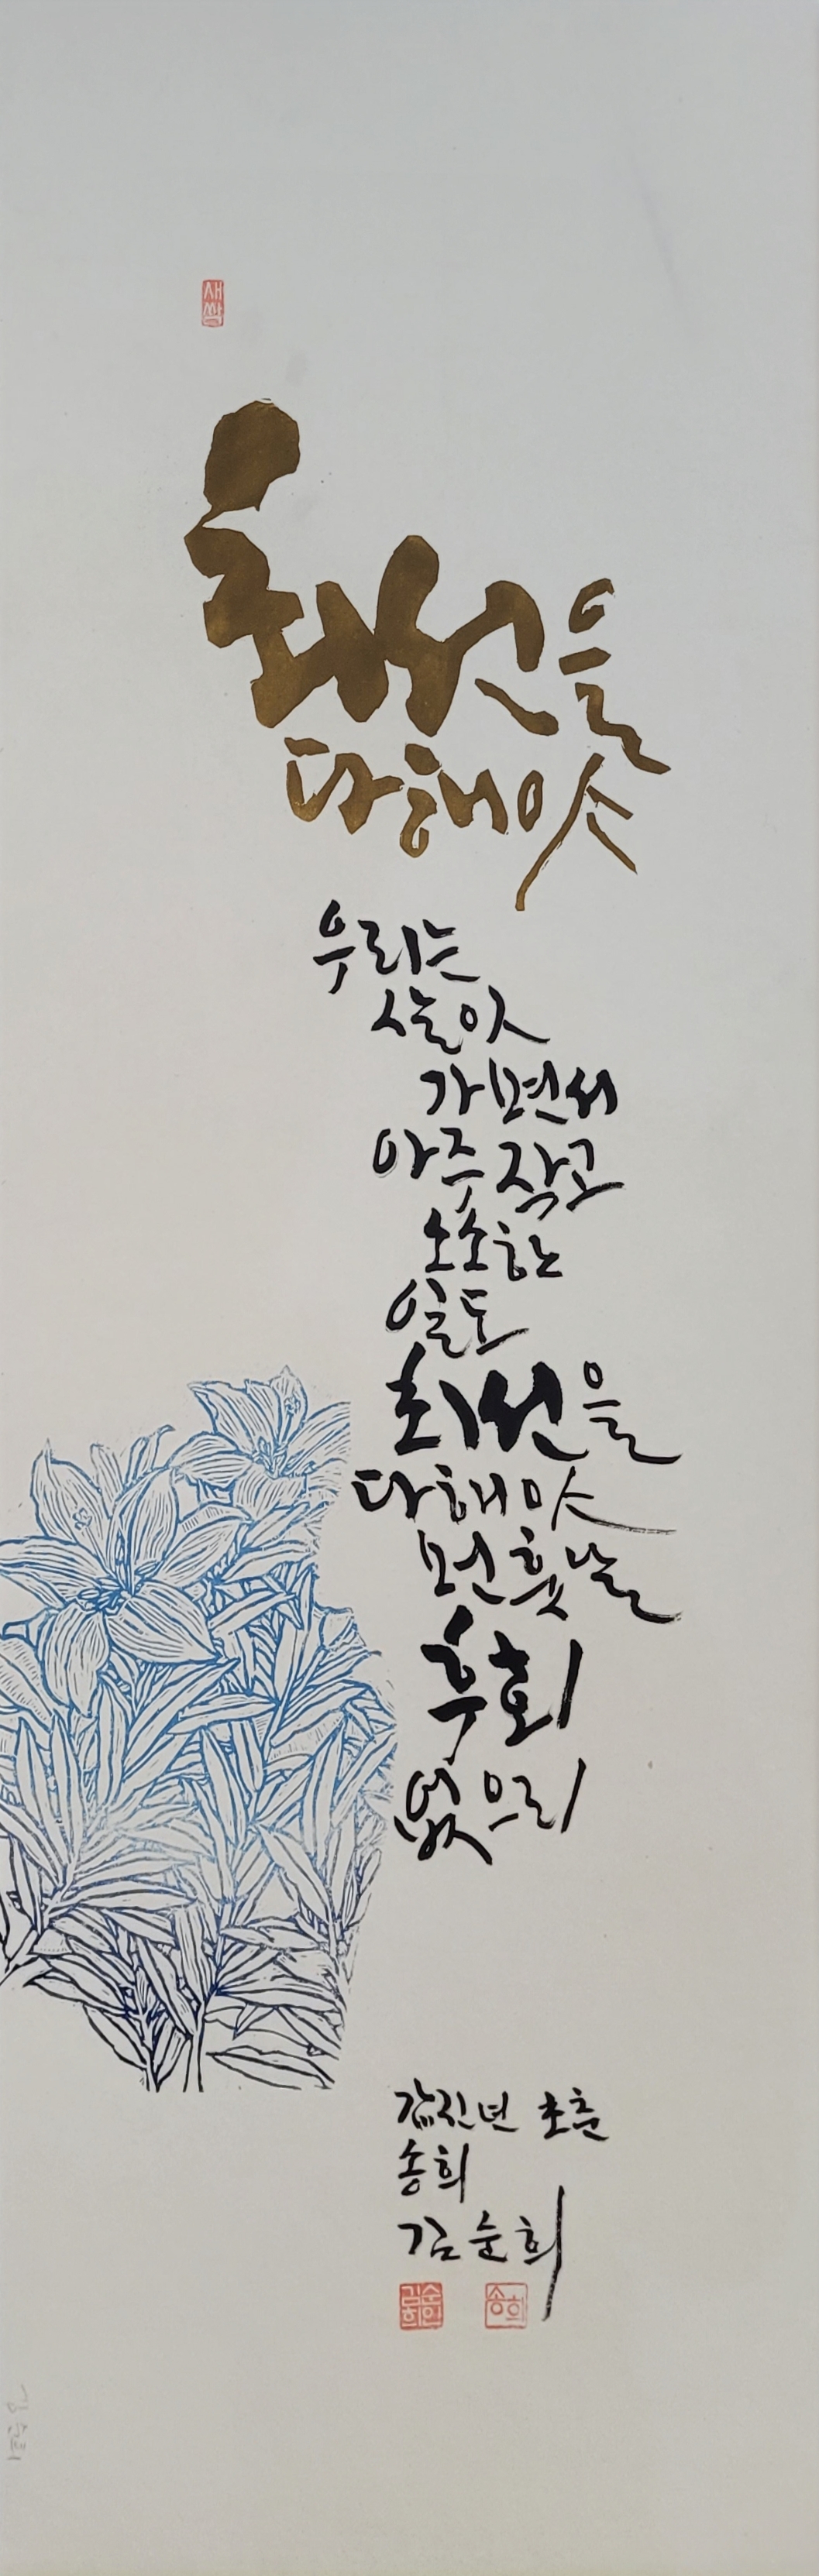 새싹
최선을
다해야
우리는
살아
가면서
아주 작고
소소한
일도
최선을
다해야
먼 훗날
후회
없으리
갑진년 초춘
송희
김순희
김순희
송희
김순희